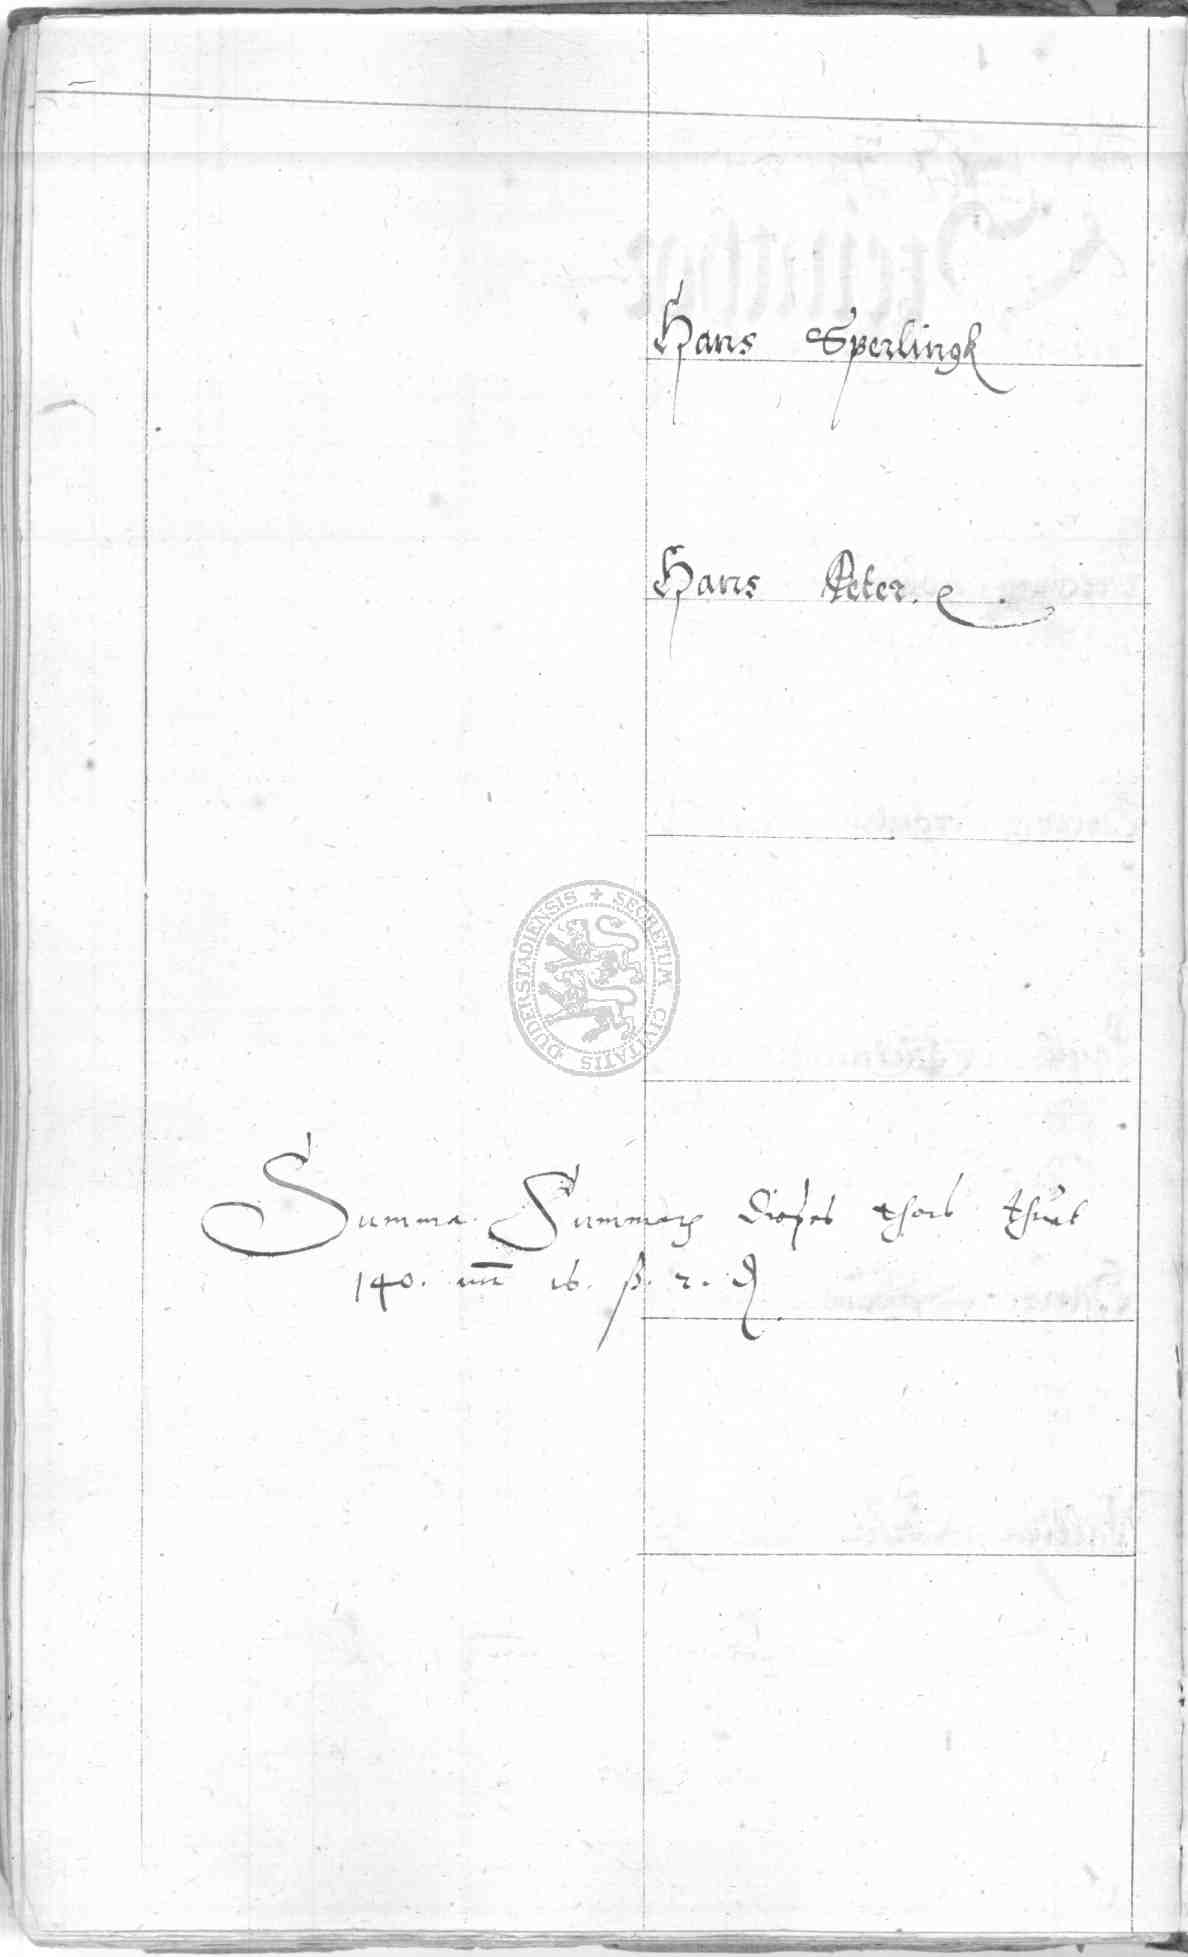 Hans Sperlingk
Hans Peter.
SECRETUM CIVITATIS DUDERSTADIENSIS
Summa Summarum dieses thors thuet
140. m 16. ß. 2. ₰